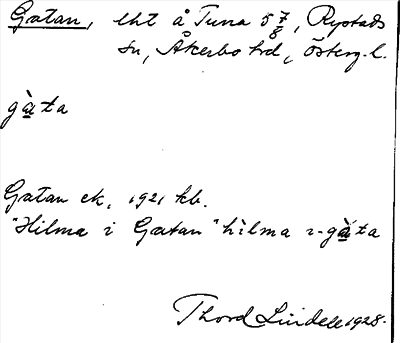 Gatan, lht å Tuna 5 7/8, Rystads
sn, Åkerbo hd, Österg. l.
gàta
Gatan ek, 1921 kb.
"Hilma i Gatan" hìlma i-gàta
Thord Lindell 1928.